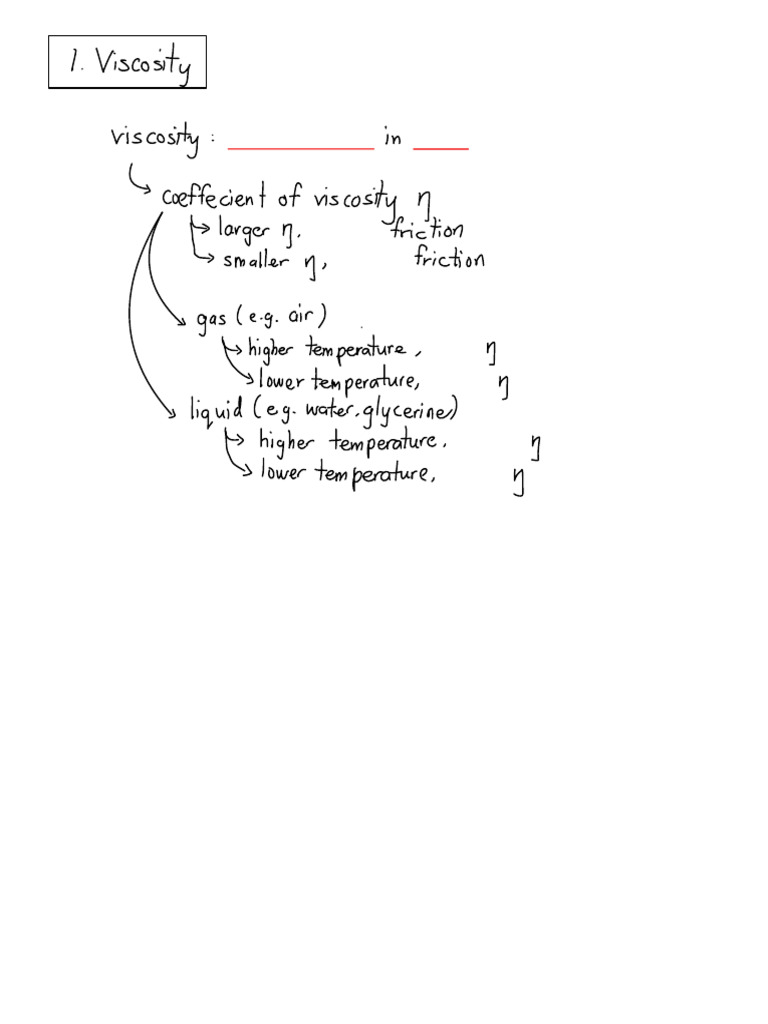 1. Viscosity
viscosity : __________ in ____
coeffecient of viscosity η
larger η, friction
smaller η, friction
gas (e.g. air)
higher temperature, η
lower temperature, η
liquid (e.g. water, glycerines)
higher temperature, η
lower temperature, η